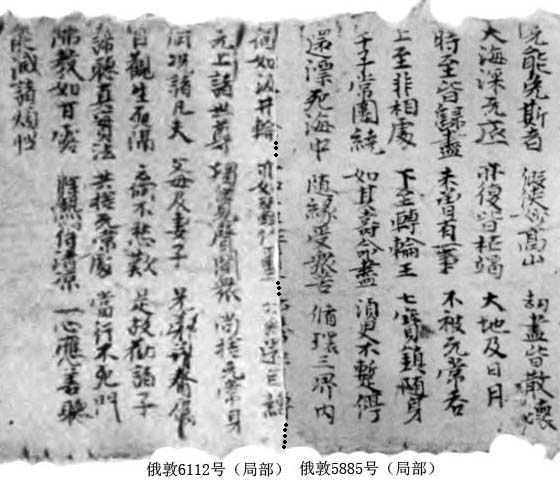 无能免斯者 假使妙高山 劫盡皆散壞
大海深无底 亦復皆枯竭 大地及日月
時至皆歸盡 未曾有一事 不被无常吞
上至非相處 下至轉輪王 七寶鎮隨身
千子常圍繞 如其壽命盡 須臾不暫停
還漂死海中 随緣受眾苦 循環三界内
如汲井輪 亦如蠶作繭
无上諸世尊 獨覺聲聞眾 尚捨无常身
何况諸凡夫 父母及妻子 眷屬
目觀生死隔 不愁歎 是故勸諸子
諦聽真實法 共捨无常處 當行不死門
佛教如甘露 除熱得清涼 一心應善聽
能滅諸煩惱
俄敦6112号（局部） 俄敦5885号（局部）